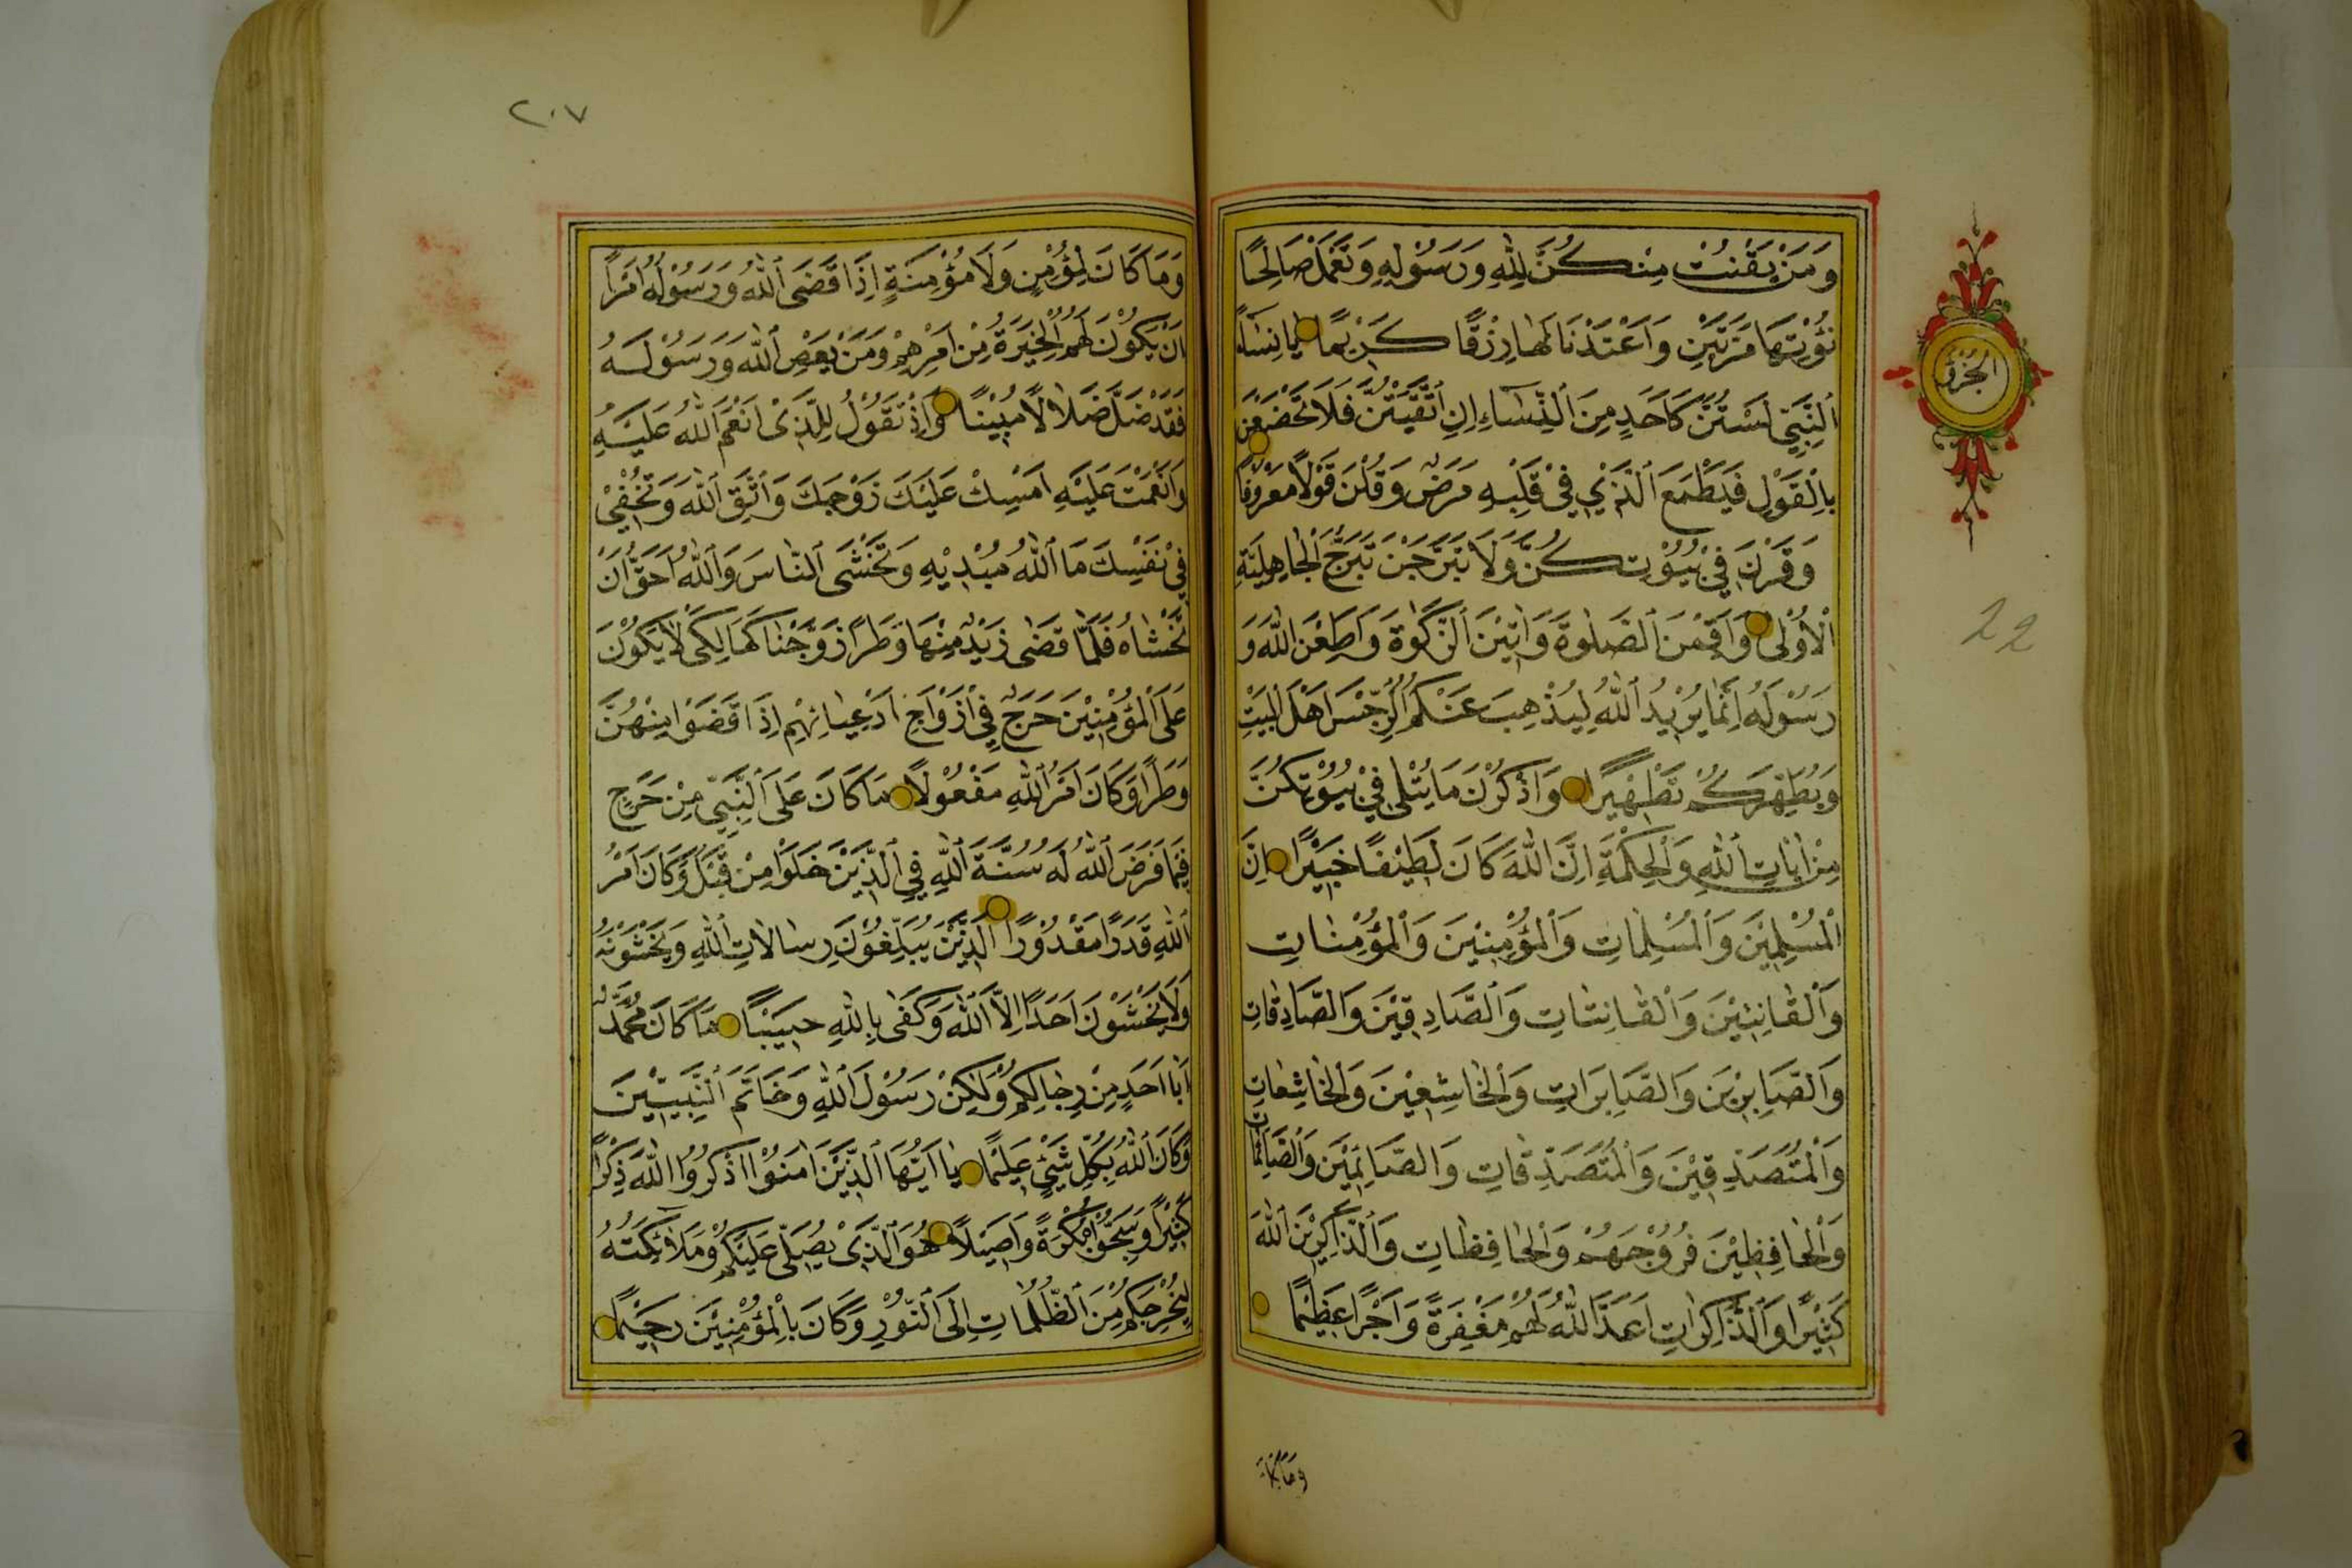 وَمَنْ يَقْنُتْ مِنْكُنَّ لِلّٰهِ وَرَسُولِهِ وَتَعْمَلْ صَالِحًا
نُؤْتِهَا اَجْرَهَا مَرَّتَيْنِ وَاَعْتَدْنَا لَهَا رِزْقًا كَرِيْمًا يَا نِسَاءَ
النَّبِيِّ لَسْتُنَّ كَاَحَدٍ مِنَ النِّسَاءِ اِنِ اتَّقَيْتُنَّ فَلَا تَخْضَعْنَ
بِالْقَوْلِ فَيَطْمَعَ الَّذِي فِيْ قَلْبِهِ مَرَضٌ وَقُلْنَ قَوْلًا مَعْرُوفًا
وَقَرْنَ فِيْ بُيُوْتِكُنَّ وَلَا تَبَرَّجْنَ تَبَرُّجَ الْجَاهِلِيَّةِ
الْاُوْلٰى وَاَقِمْنَ الصَّلٰوةَ وَاٰتِيْنَ الزَّكٰوةَ وَاَطِعْنَ اللّٰهَ وَ
رَسُوْلَهُ اِنَّمَا يُرِيْدُ اللّٰهُ لِيُذْهِبَ عَنْكُمُ الرِّجْسَ اَهْلَ الْبَيْتِ
وَيُطَهِّرَكُمْ تَطْهِيْرًا وَاذْكُرْنَ مَا يُتْلٰى فِيْ بُيُوْتِكُنَّ
مِنْ اٰيَاتِ اللّٰهِ وَالْحِكْمَةِ اِنَّ اللّٰهَ كَانَ لَطِيْفًا خَبِيْرًا اِنَّ
الْمُسْلِمِيْنَ وَالْمُسْلِمَاتِ وَالْمُؤْمِنِيْنَ وَالْمُؤْمِنَاتِ
وَالْقَانِتِيْنَ وَالْقَانِتَاتِ وَالصَّادِقِيْنَ وَالصَّادِقَاتِ
وَالصَّابِرِيْنَ وَالصَّابِرَاتِ وَالْخَاشِعِيْنَ وَالْخَاشِعَاتِ
وَالْمُتَصَدِّقِيْنَ وَالْمُتَصَدِّقَاتِ وَالصَّائِمِيْنَ وَالصَّائِمَاتِ
وَالْحَافِظِيْنَ فُرُوْجَهُمْ وَالْحَافِظَاتِ وَالذَّاكِرِيْنَ اللّٰهَ
كَثِيْرًا وَالذَّاكِرَاتِ اَعَدَّ اللّٰهُ لَهُمْ مَغْفِرَةً وَاَجْرًا عَظِيْمًا
وَمَا كَانَ
الجزؤ
22
٢٠٧
وَمَا كَانَ لِمُؤْمِنٍ وَلَا مُؤْمِنَةٍ اِذَا قَضَى اللّٰهُ وَرَسُوْلُهُ اَمْرًا
اَنْ يَكُوْنَ لَهُمُ الْخِيَرَةُ مِنْ اَمْرِهِمْ وَمَنْ يَعْصِ اللّٰهَ وَرَسُوْلَهُ
فَقَدْ ضَلَّ ضَلَالًا مُبِيْنًا وَاِذْ تَقُوْلُ لِلَّذِىْ اَنْعَمَ اللّٰهُ عَلَيْهِ
وَاَنْعَمْتَ عَلَيْهِ اَمْسِكْ عَلَيْكَ زَوْجَكَ وَاتَّقِ اللّٰهَ وَتُخْفِيْ
فِيْ نَفْسِكَ مَا اللّٰهُ مُبْدِيْهِ وَتَخْشَى النَّاسَ وَاللّٰهُ اَحَقُّ اَنْ
تَخْشَاهُ فَلَمَّا قَضٰى زَيْدٌ مِنْهَا وَطَرًا زَوَّجْنَاكَهَا لِكَىْ لَا يَكُوْنَ
عَلَى الْمُؤْمِنِيْنَ حَرَجٌ فِيْ اَزْوَاجِ اَدْعِيَائِهِمْ اِذَا قَضَوْا مِنْهُنَّ
وَطَرًا وَكَانَ اَمْرُ اللّٰهِ مَفْعُوْلًا مَا كَانَ عَلَى النَّبِيِّ مِنْ حَرَجٍ
فِيْمَا فَرَضَ اللّٰهُ لَهُ سُنَّةَ اللّٰهِ فِي الَّذِيْنَ خَلَوْا مِنْ قَبْلُ وَكَانَ اَمْرُ
اللّٰهِ قَدَرًا مَقْدُوْرًا الَّذِيْنَ يُبَلِّغُوْنَ رِسَالَاتِ اللّٰهِ وَيَخْشَوْنَهُ
وَلَا يَخْشَوْنَ اَحَدًا اِلَّا اللّٰهَ وَكَفٰى بِاللّٰهِ حَسِيْبًا مَا كَانَ مُحَمَّدٌ
اَبَا اَحَدٍ مِنْ رِجَالِكُمْ وَلٰكِنْ رَسُوْلَ اللّٰهِ وَخَاتَمَ النَّبِيِّيْنَ
وَكَانَ اللّٰهُ بِكُلِّ شَيْئٍ عَلِيْمًا يَا اَيُّهَا الَّذِيْنَ اٰمَنُوْا اذْكُرُوا اللّٰهَ ذِكْرًا
كَثِيْرًا وَسَبِّحُوْهُ بُكْرَةً وَاَصِيْلًا هُوَ الَّذِىْ يُصَلِّيْ عَلَيْكُمْ وَمَلَائِكَتُهُ
لِيُخْرِجَكُمْ مِنَ الظُّلُمَاتِ اِلَى النُّوْرِ وَكَانَ بِالْمُؤْمِنِيْنَ رَحِيْمًا